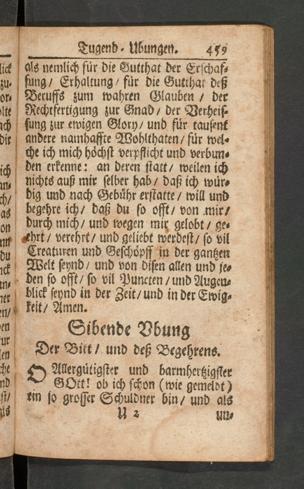 Tugend-Ubungen. 459
als nemlich für die Gutthat der Erschaf-
fung / Erhaltung / für die Gutthat deß
Beruffs zum wahren Glauben / der
Rechtfertigung zur Gnad / der Verheis-
sung zur ewigen Glory / und für tausent
andere namhaffte Wohlthaten / für wel-
che ich mich höchst verpflicht und verbun-
den erkenne: an deren statt / weilen ich
nichts auß mir selber hab / daß ich wür-
dig und nach Gebühr erstatte / will und
begehre ich / daß du so offt / von mir /
durch mich / und wegen mir gelobt / ge-
ehrt / verehrt / und geliebt werdest / so vil
Creaturen und Geschöpff in der gantzen
Welt seynd / und von disen allen und je-
den so offt / so vil Puncten / und Augen-
blick seynd in der Zeit / und in der Ewig-
keit / Amen.
Sibende Vbung
Der Bitt / und deß Begehrens.
O Allergütigster und barmhertzigster
GOtt! ob ich schon (wie gemelt)
ein so grosser Schuldner bin / und als
U 2 un-